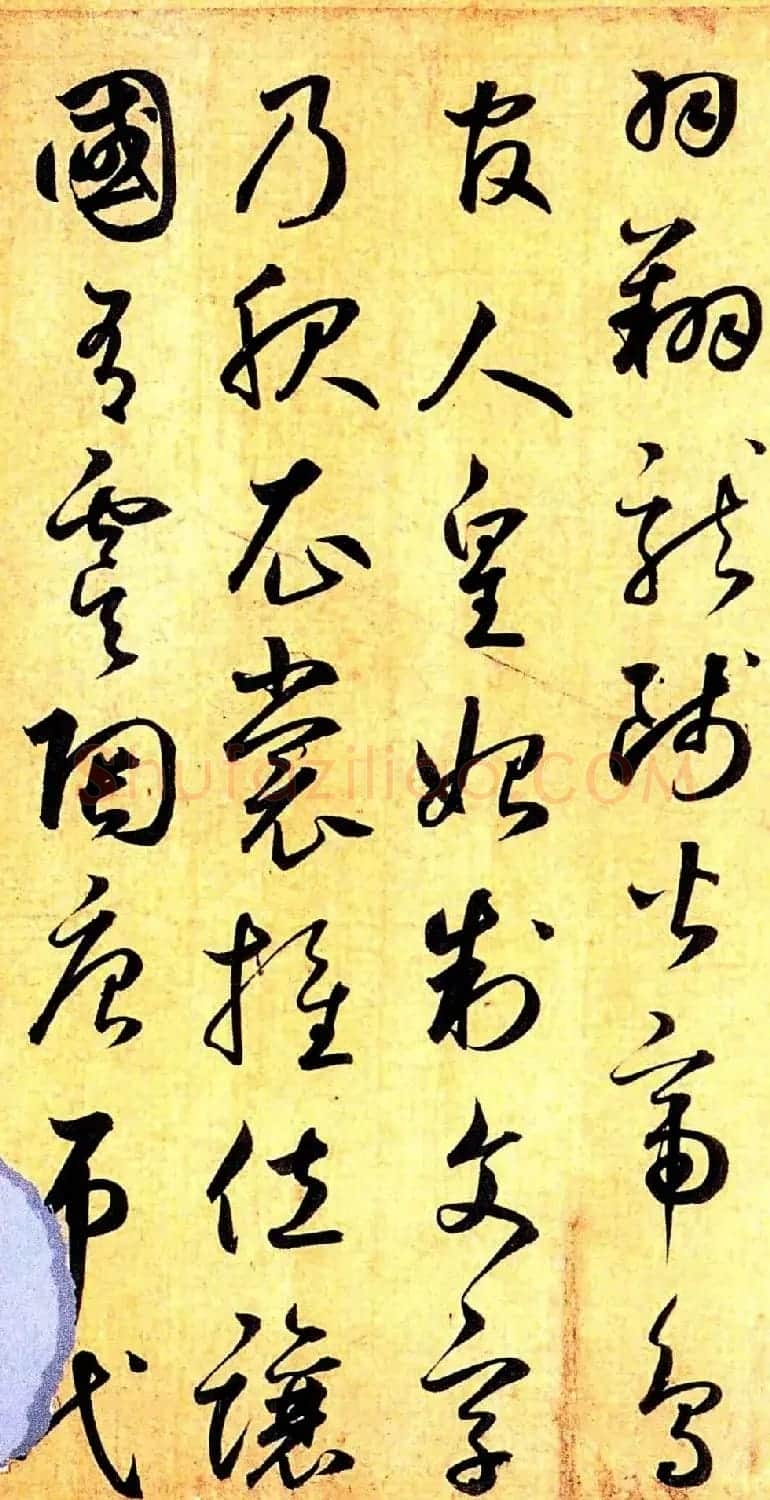 羽翔龍師火帝鳥
官人皇始制文字
乃服衣裳推位讓
國有虞陶唐吊
Shufaziliao.COM